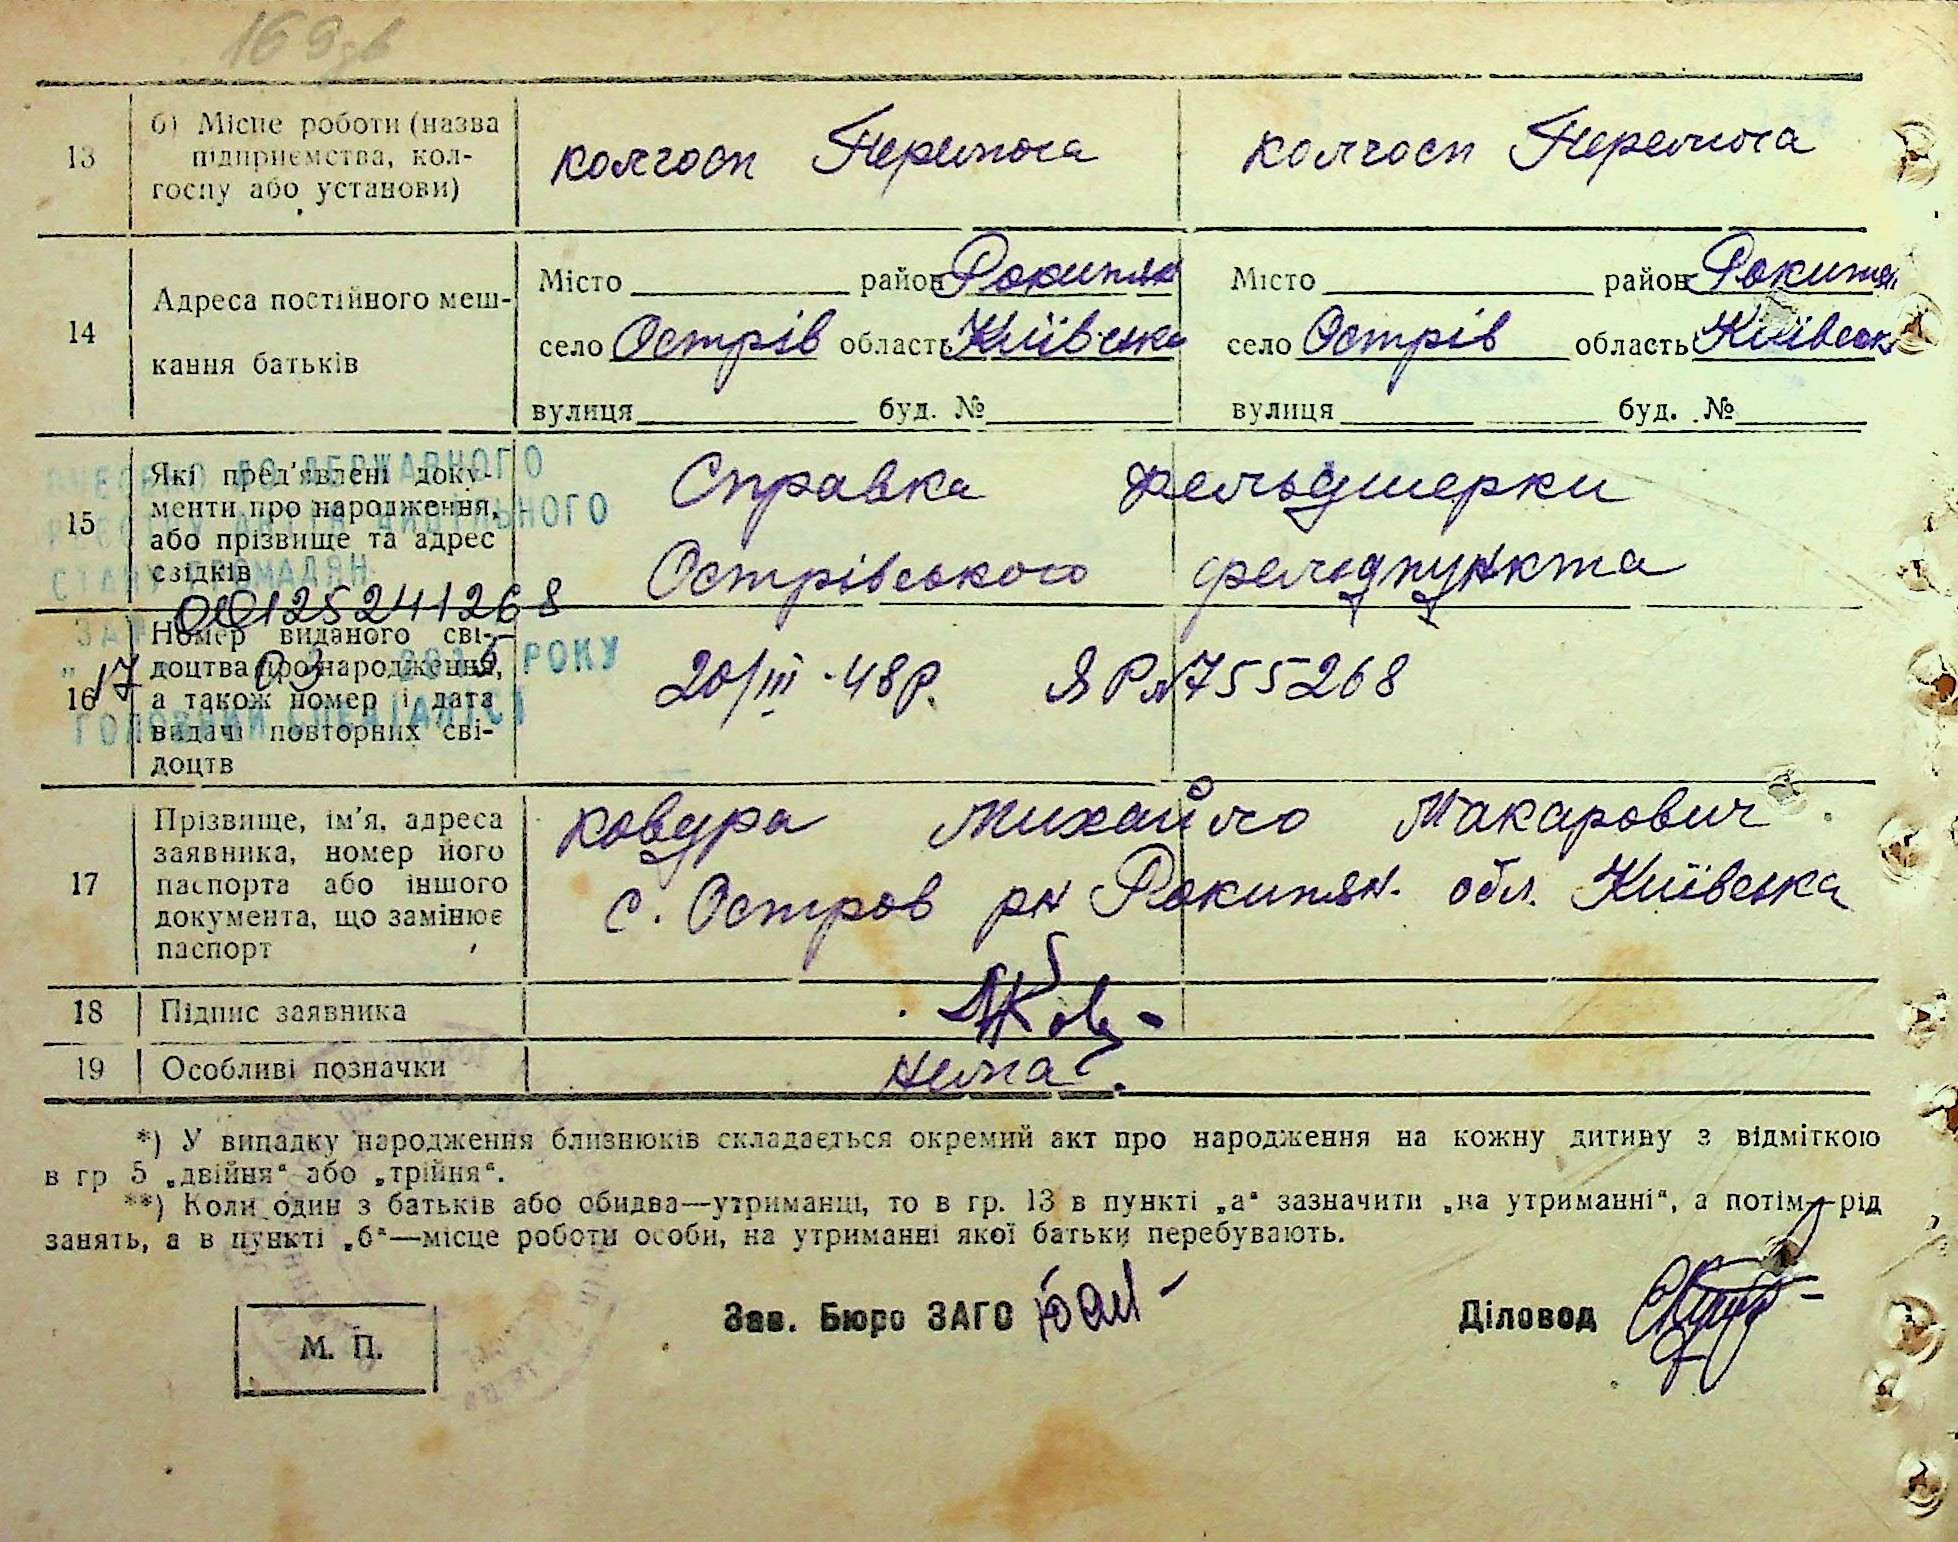 169зв
13
б) Місце роботи (назва
підприємства, кол-
госпу або установи)
колгосп Перемога
колгосп Перемога
14
Адреса постійного меш-
кання батьків
Місто район Рокитян
село Острів область Київська
вулиця буд. №
Місто район Рокитян
село Острів область Київськ
вулиця буд. №
15
Які пред'явлені доку-
менти про народження,
або прізвище та адрес
свідків
Справка фельдшерки
Острівського фельдпункта
ВНЕСЕНО ДО ДЕРЖАВНОГО
РЕЄСТРУ АКТІВ ЦИВІЛЬНОГО
СТАНУ ГРОМАДЯН
ЗА №
00125241268
17 03 2015 РОКУ
ГОЛОВНИЙ СПЕЦІАЛІСТ
16
Номер виданого сві-
доцтва про народження,
а також номер і дата
видачі повторних сві-
доцтв
20/III-48р. ЯР №755268
17
Прізвище, ім'я, адреса
заявника, номер його
паспорта або іншого
документа, що замінює
паспорт
Ковура Михайло Макарович
с. Остров рн Рокитян. обл. Київська
18
Підпис заявника
19
Особливі позначки
нема
*) У випадку народження близнюків складається окремий акт про народження на кожну дитину з відміткою
в гр 5 „двійня“ або „трійня“.
**) Коли один з батьків або обидва—утриманці, то в гр. 13 в пункті „а“ зазначити „на утриманні“, а потім—рід
занять, а в пункті „б“—місце роботи особи, на утриманні якої батьки перебувають.
М. П.
Зав. Бюро ЗАГС
Діловод